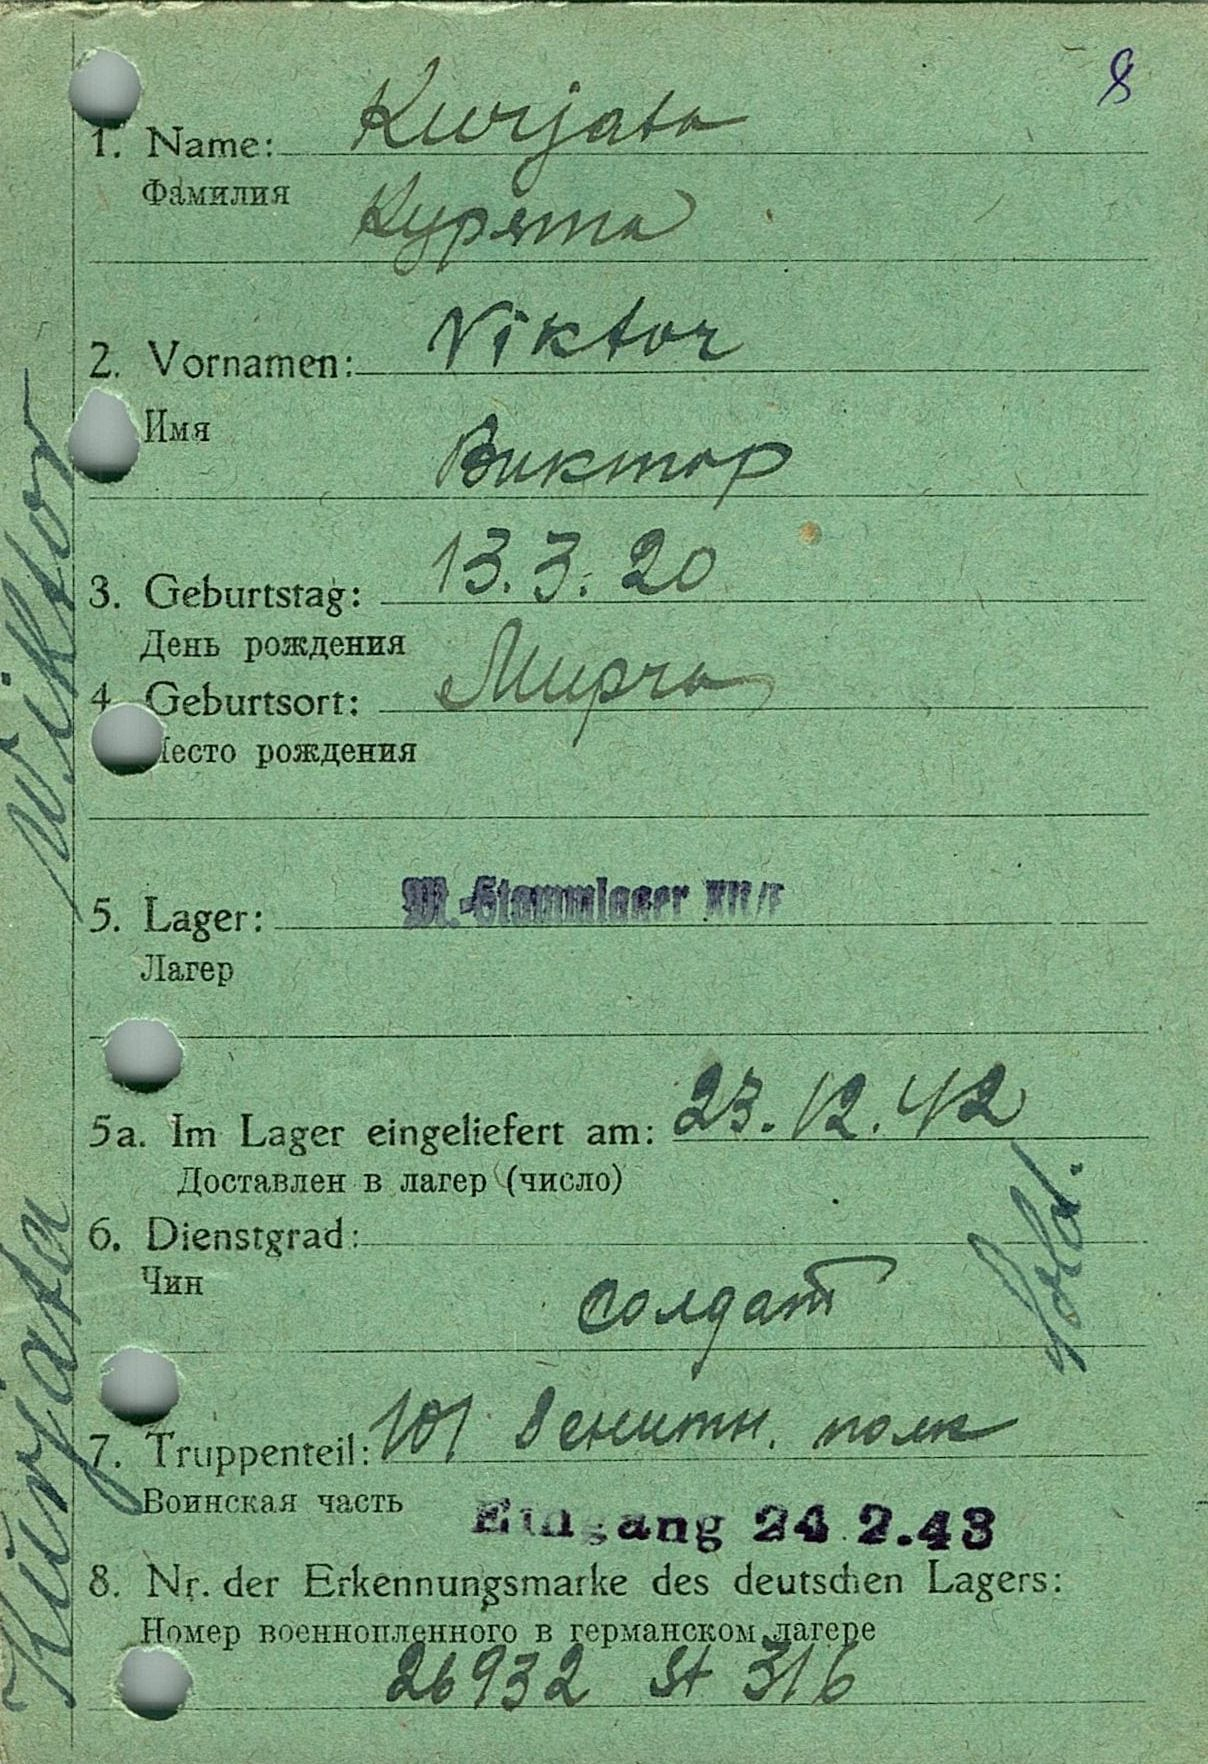 8
1. Name: Kurjata
Фамилия
Курята
2. Vornamen: Viktor
Имя
Виктор
3. Geburtstag: 13.3.20
День рождения
4. Geburtsort: Мирча
Место рождения
5. Lager: M.-Stammlager XII/F
Лагер
5a. Im Lager eingeliefert am: 23.12.42
Доставлен в лагер (число)
6. Dienstgrad:
Чин
солдат
Sold.
7. Truppenteil: 101 Зенитн. полк
Воинская часть
Eingang 24 2.43
8. Nr. der Erkennungsmarke des deutschen Lagers:
Номер военнопленного в германском лагере
26932 St 316
Kurjata Wiktor